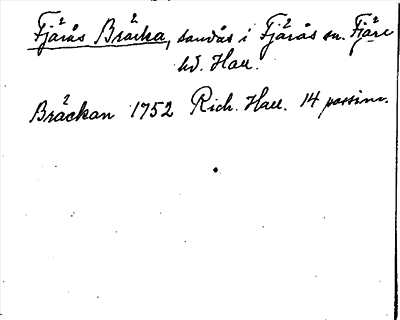 Fjärås Bräcka, sandås i Fjärås sn. Fjäre
hd. Hall.
Bräckan 1752 Rich. Hall. 14 passim.